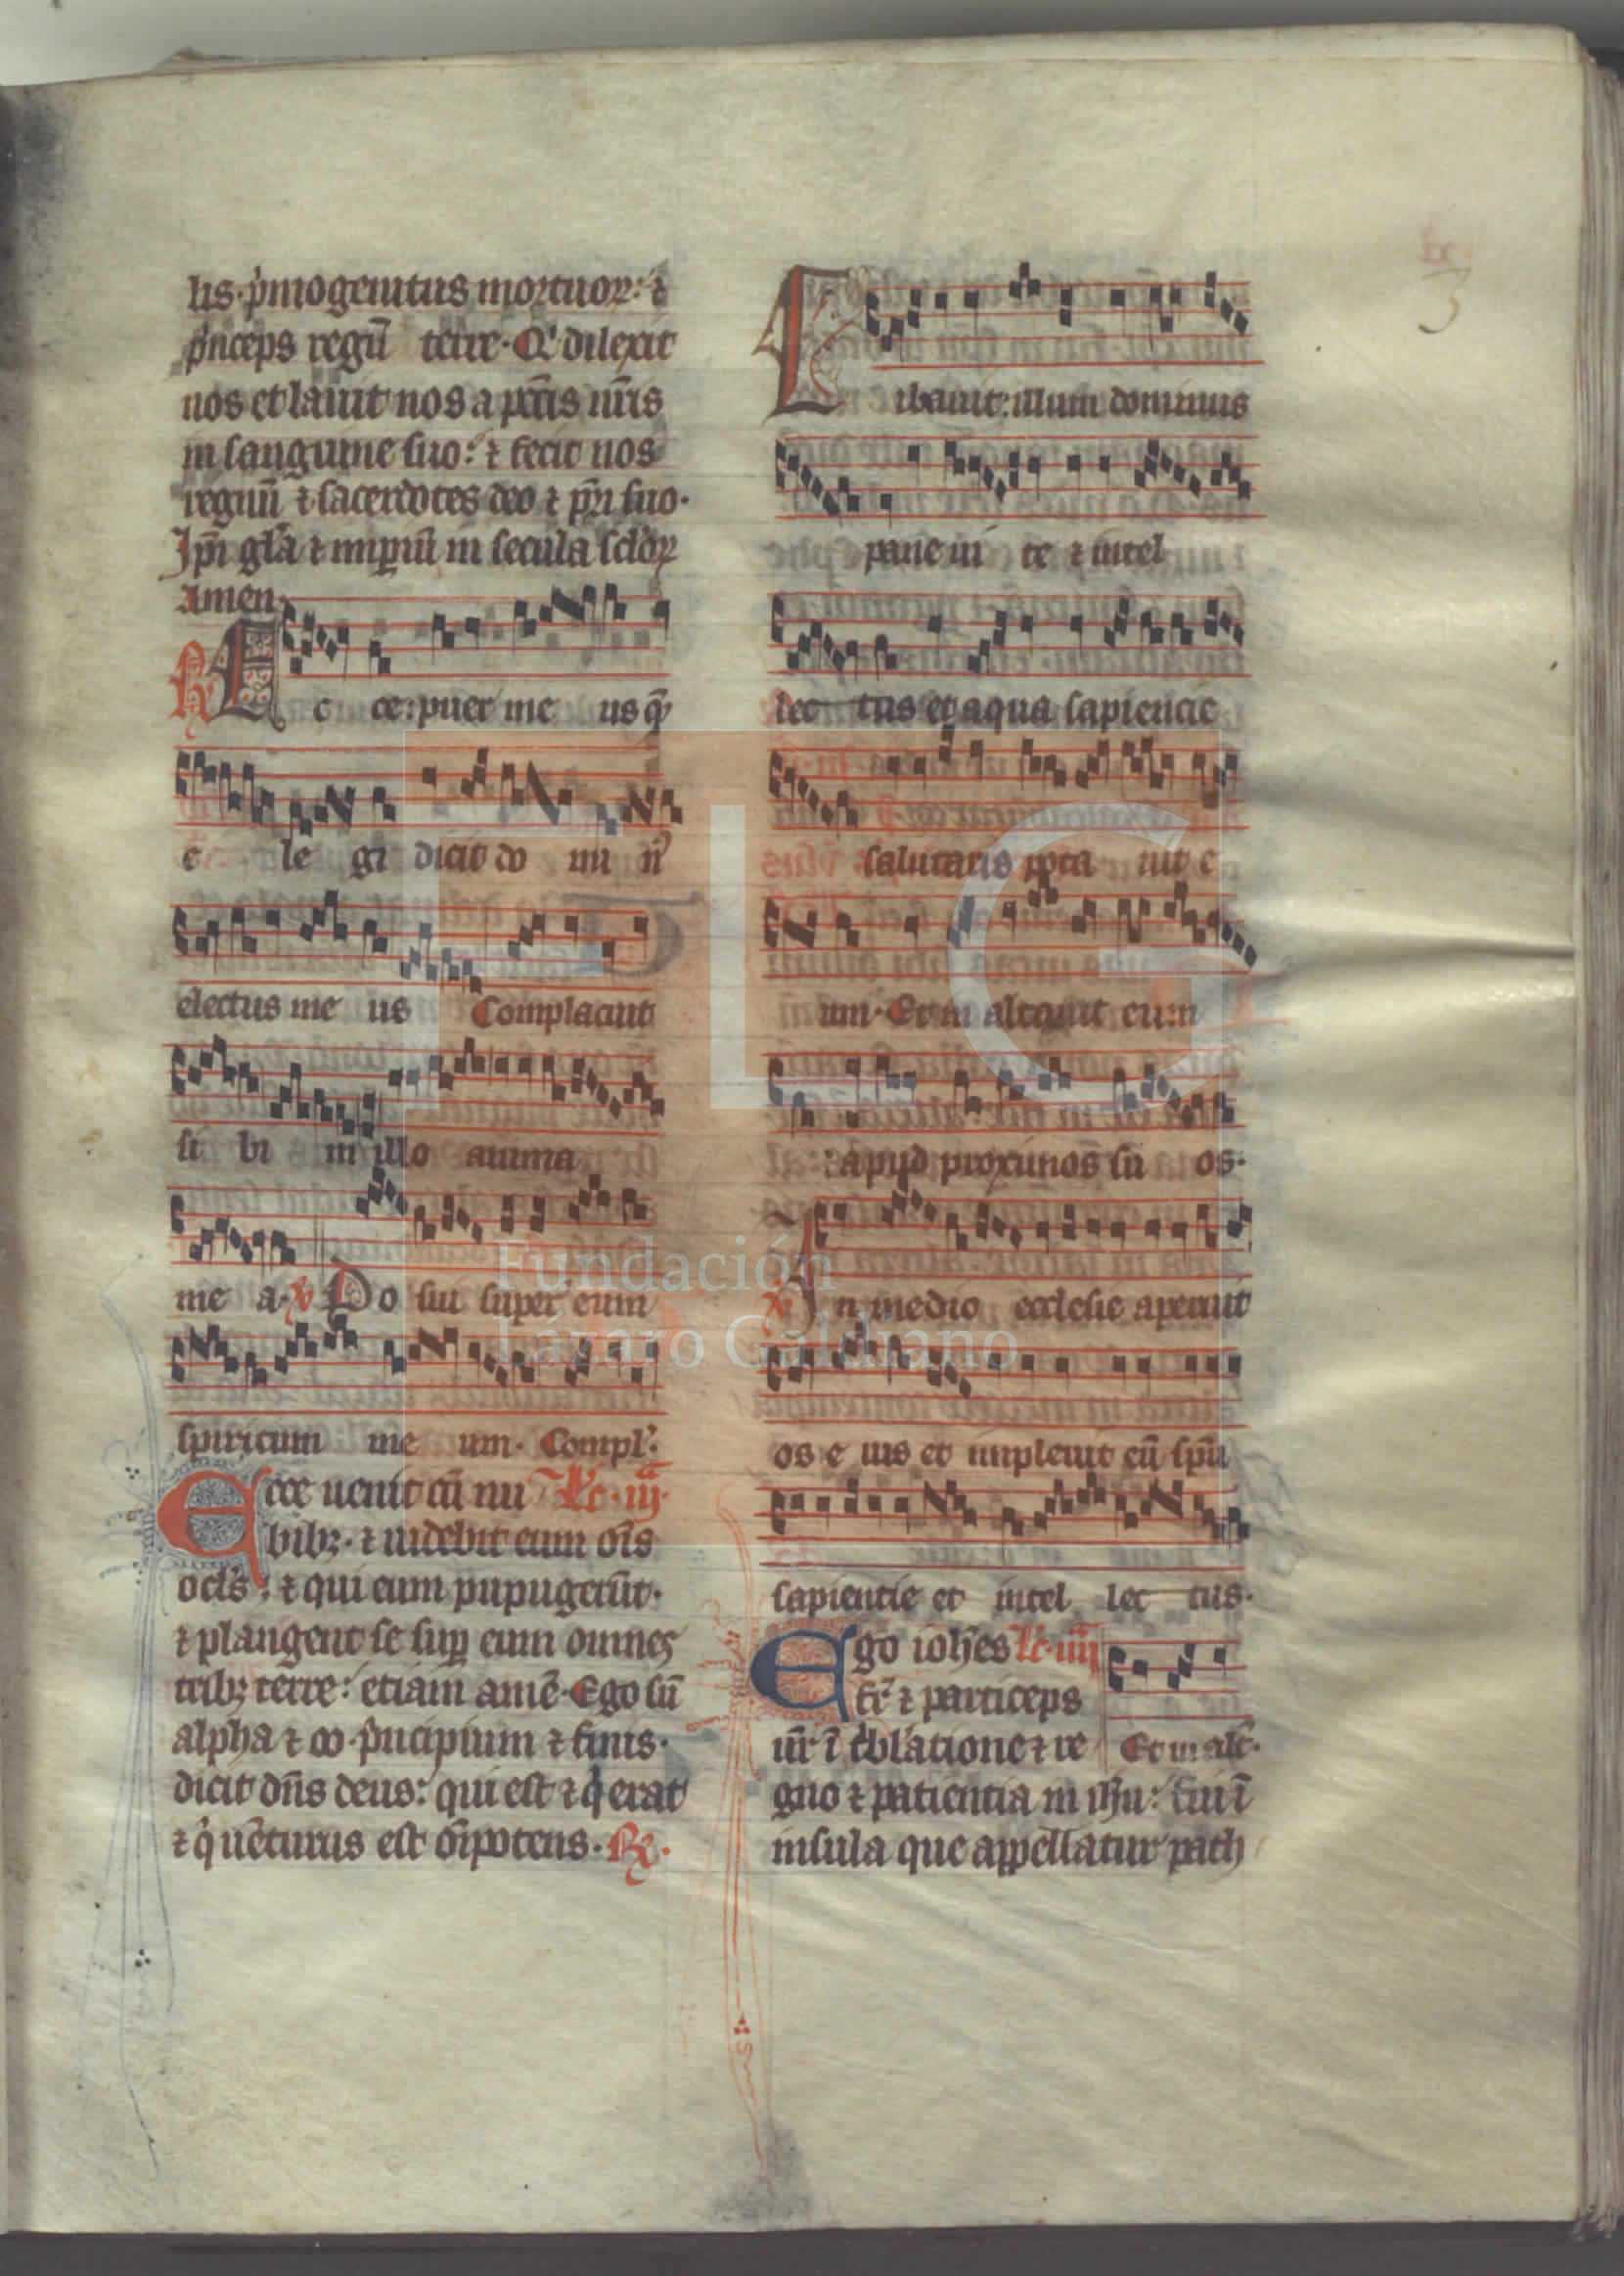 lis. p̍mogenitus mortuoꝝ: ⁊
p̍nceps regū terre. Q̍ dilexit
nos et lauit nos a pc̄tis nr̄is
in sanguine suo: ⁊ fecit nos
regnū ⁊ sacerdotes deo ⁊ pr̄i suo.
Ip̄i gl̄a ⁊ imꝑiū in secula sc̄loꝝ
amen.
R Ec ce: puer me us quē
e le gi dicit do mi n̄
electus me us Complacuit
si bi in illo anima
me a. v̄ Po sui super eum
spiritum me um. Compl̍.
Ecce uenit cū nu Lc̄. iij.a
bibꝫ. ⁊ uidebit eum oīs
ocl̄s: ⁊ qui eum pupugerūt.
⁊ plangent se suꝑ eum omnes
tribꝫ terre: etiam amē. Ego sū
alpha ⁊ ω. p̍ncipium ⁊ finis.
dicit dn̄s deus: qui est ⁊ q̍ erat
⁊ q̍ uēturus est oīpotens. R̷.
Cibauit: illum dominus
pane ui te ⁊ intel
lec tus et aqua sapiencie
salutaris pota uit e
um. Et exaltauit eum
: apud proximos su os.
v̄ In medio ecclesie aperuit
os e ius et impleuit eū spū
sapientie et intel lec tus.
Ego ioh̄es Lc̄. iiij
fr̄ ⁊ particeps
ur̄ ī t̍bl̄atione ⁊ re Et exalt̄.
gno ⁊ patientia in ih̄u: fui ī
insula que appellatur path
3
FLG
Fundación
Lázaro Galdiano